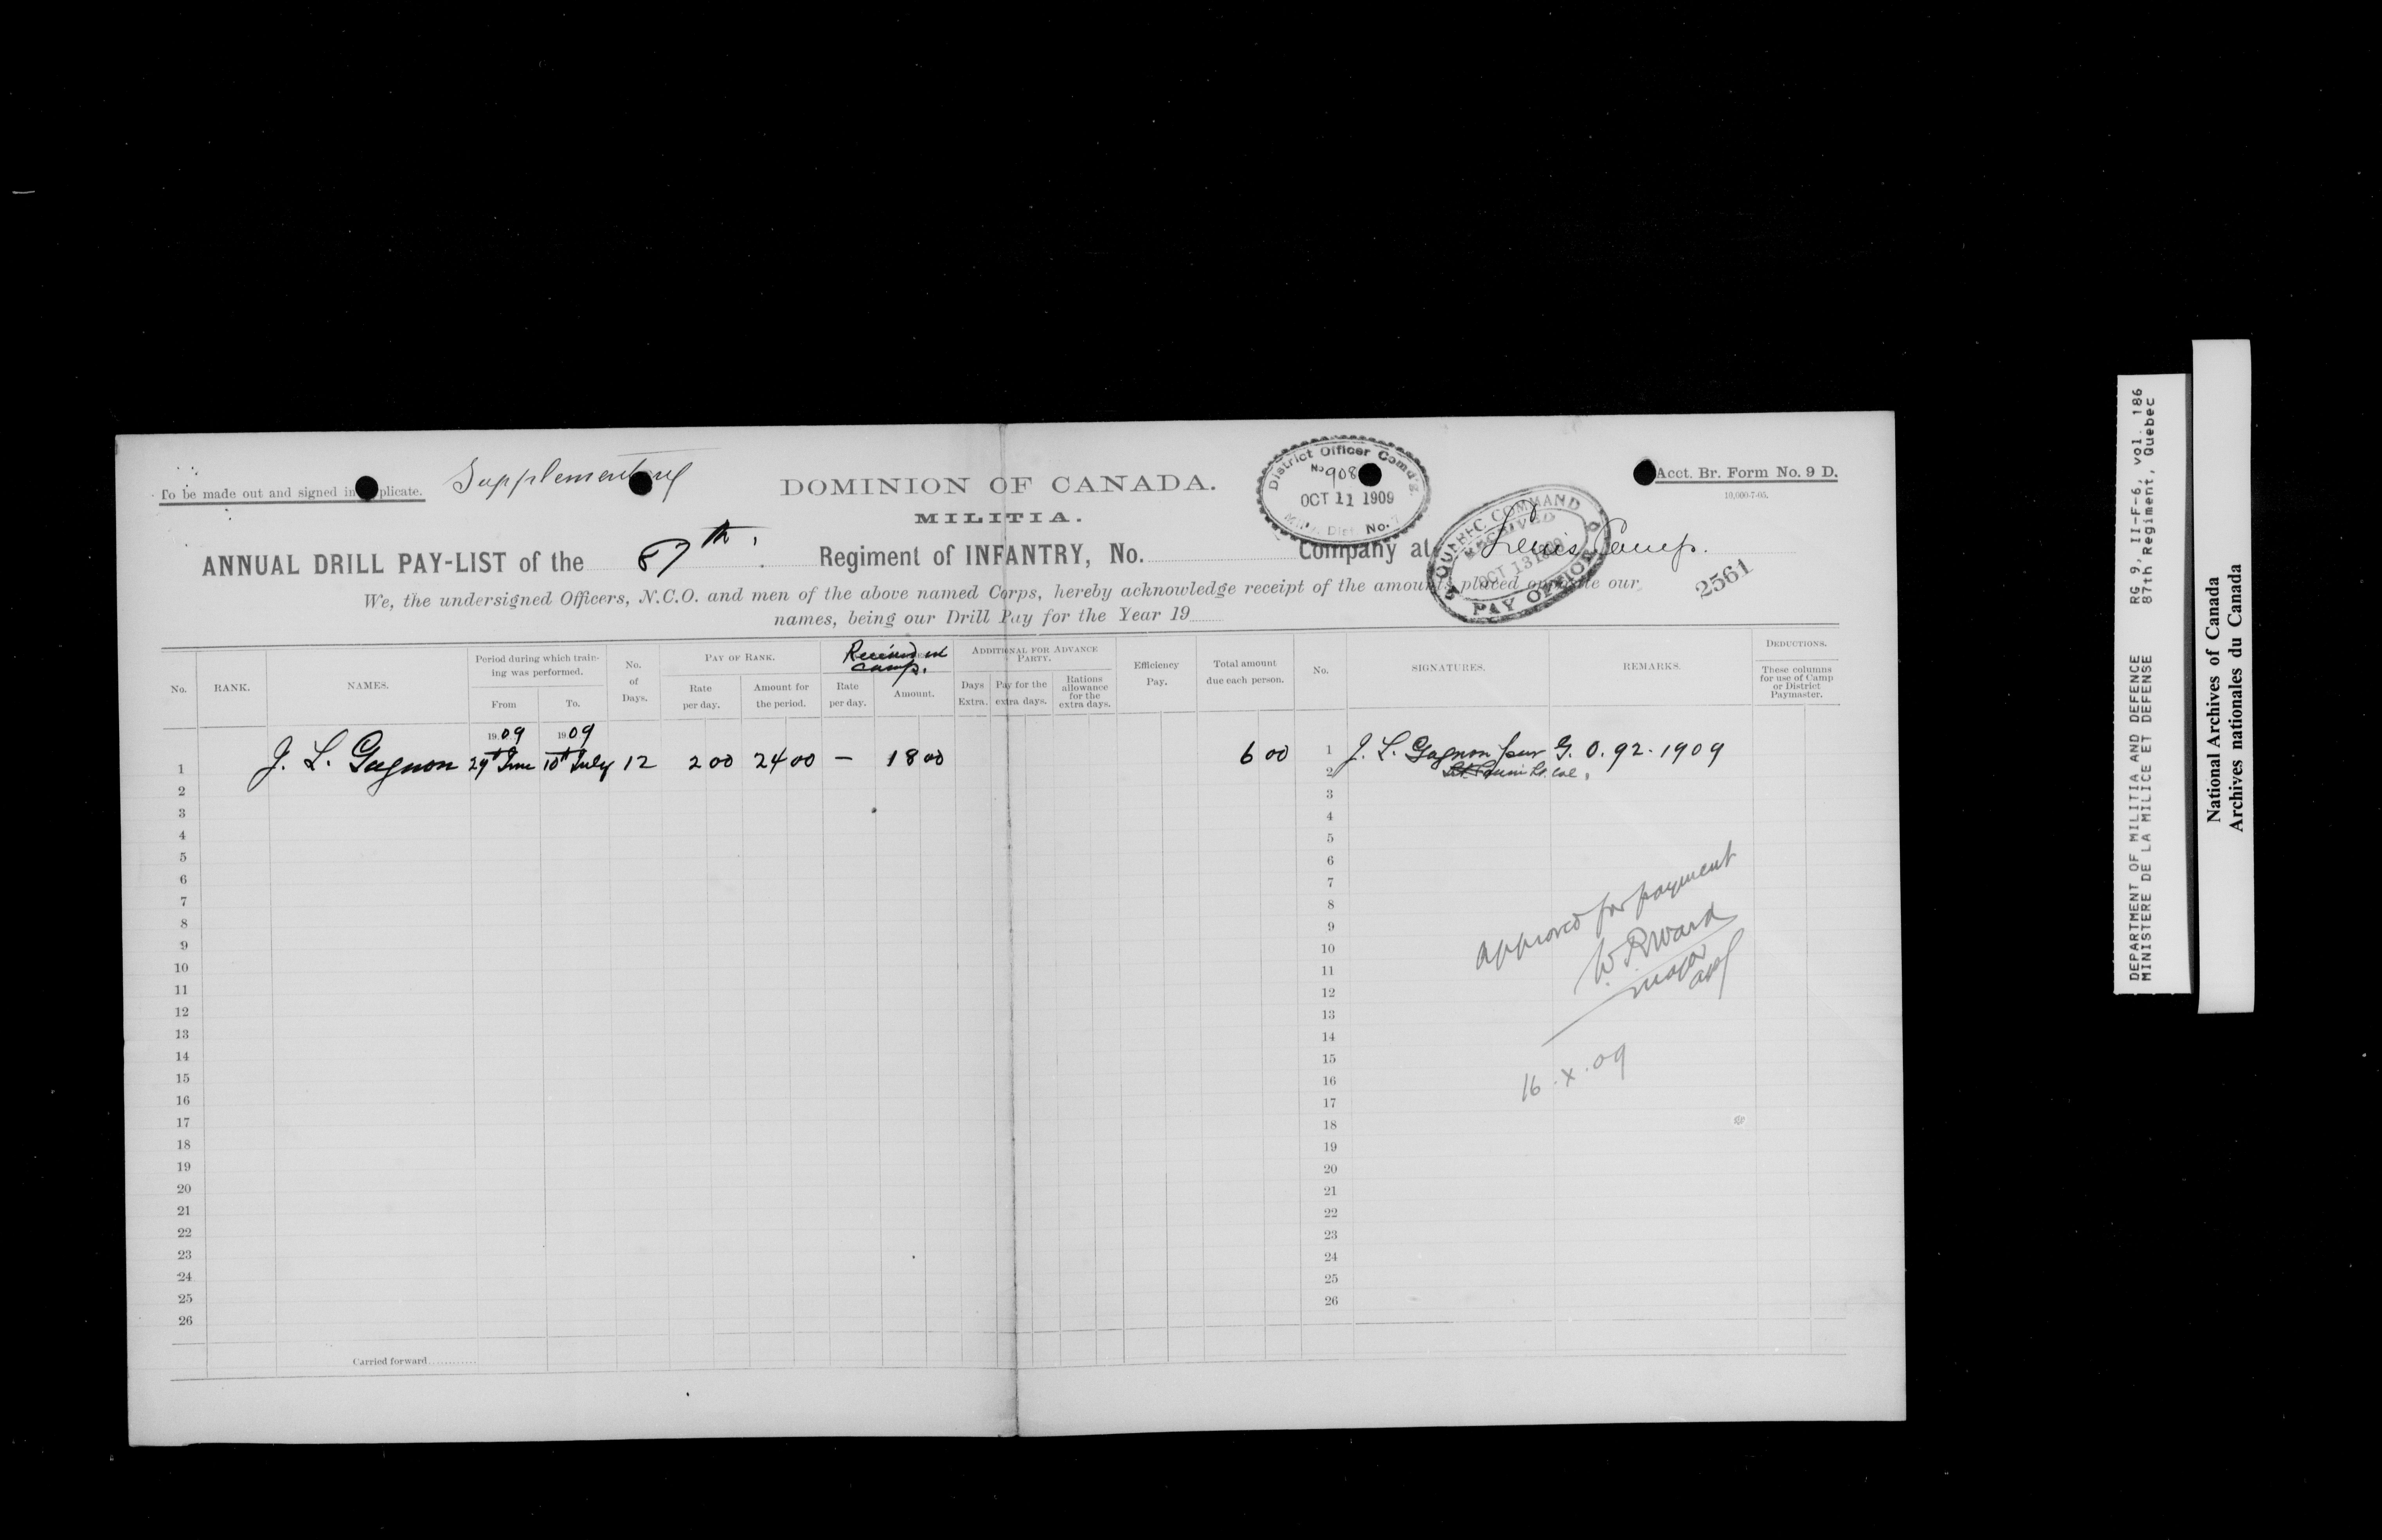 To be made out and signed in plicate.
Supplementary
DOMINION OF CANADA.
MILITIA.
District Officer Comd'g.
No 908
OCT 11 1909
Dist. No.
Acct. Br. Form No. 9 D.
10,000-7-05.
QUEBEC COMMAND
RECEIVED
OCT 13 1909
PAY OFFICE
ANNUAL DRILL PAY-LIST of the 87th Regiment of INFANTRY, No. Company at Levis Camp.
2561
We, the undersigned Officers, N.C.O. and men of the above named Corps, hereby acknowledge receipt of the amounts placed opposite our
names, being our Drill Pay for the Year 19
No. RANK. NAMES. Period during which training was performed. From To. No. of Days. PAY OF RANK. Rate per day. Amount for the period. Received in camp. Rate per day. Amount. ADDITIONAL FOR ADVANCE PARTY. Days Extra. Pay for the extra days. Rations allowance for the extra days. Efficiency Pay. Total amount due each person. No. SIGNATURES. REMARKS. DEDUCTIONS. These columns for use of Camp or District Paymaster.
1909 1909
1 J. L. Gagnon 29th June 10th July 12 2 00 24 00 — 18 00 6 00 1 J. L. Gagnon par G. O. 92. 1909
2 2 Lt. Col.
3 3
4 4
5 5
6 6
7 7
8 8
9 9
10 10
11 11
12 12
13 13
14 14
15 15
16 16
17 17
18 18
19 19
20 20
21 21
22 22
23 23
24 24
25 25
26 26
Approved for payment
W. R. Ward
Major
16.X.09
Carried forward
DEPARTMENT OF MILITIA AND DEFENCE RG 9, II-F-6, vol. 186
MINISTERE DE LA MILICE ET DEFENSE 87th Regiment, Quebec
National Archives of Canada
Archives nationales du Canada